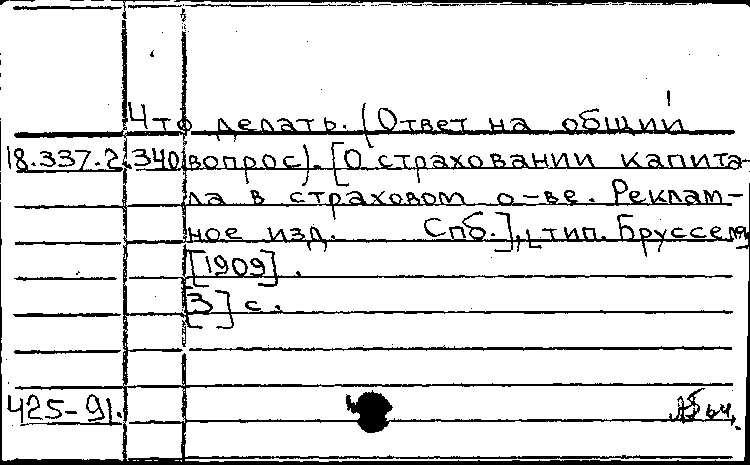 Что делать. (Ответ на общий
18.337.2.340 вопрос). [О страховании капита-
ла в страховом о-ве. Реклам-
ное изд. Спб.], тип. Бруссель
[1909].
[3] с.
425-91.